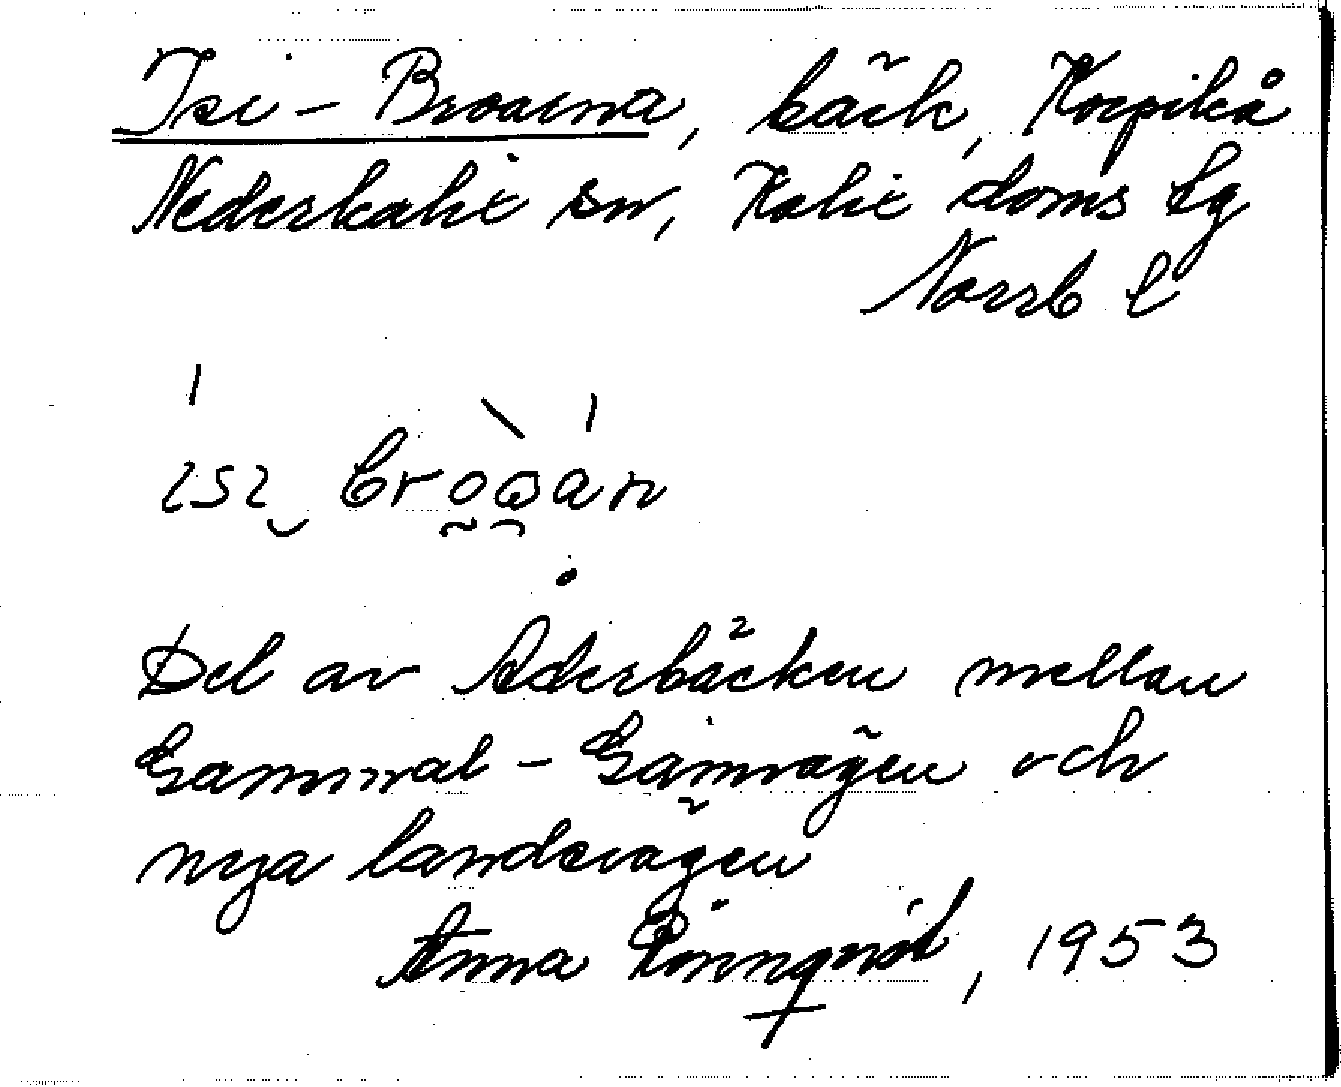 Isi-Broarna, bäck, Korpikå
Nederkalix sn, Kalix doms lg
Norrb l
ısı broɷan
Del av Åderbäcken mellan
Gammal-Gäinvägen och
nya landsvägen
Anna Rönnqvist, 1953